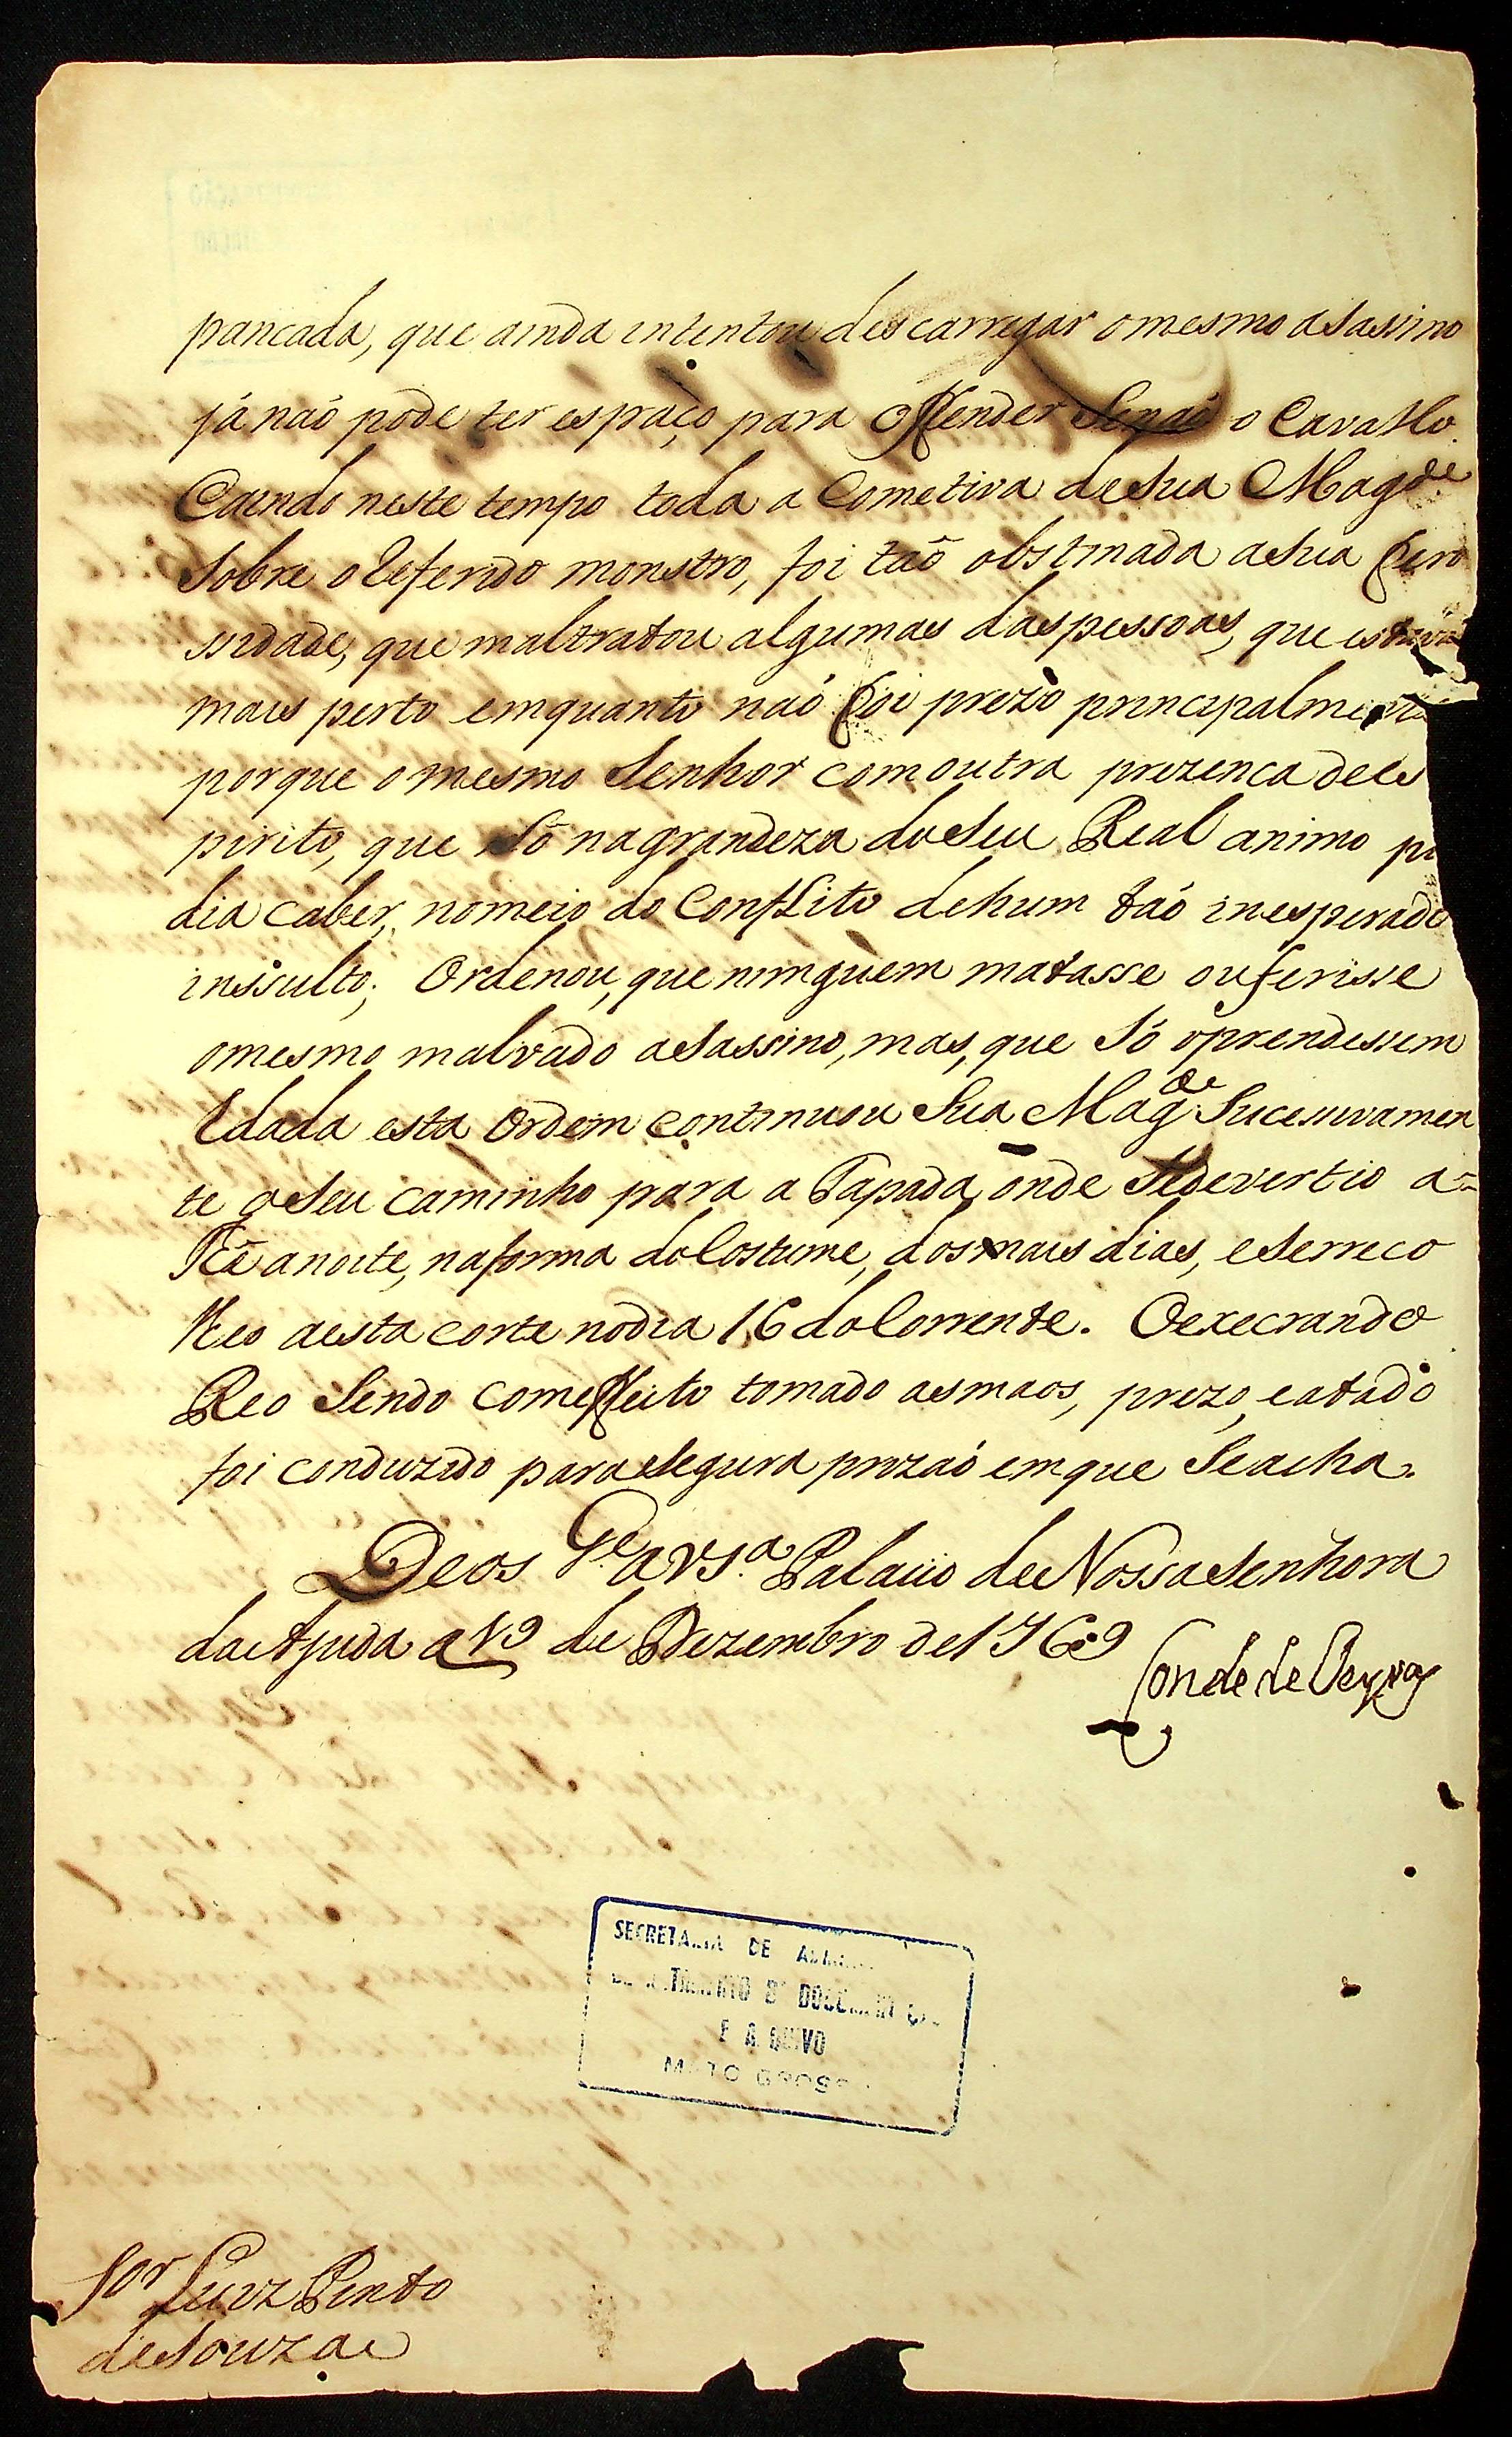 pancada, que ainda intentou descarregar o mesmo asasino
já naó pode ter espaço para offender Senaó o Cavallo.
Caindo neste tempo toda a Cometiva de Sua Magde
Sobre o Referido monstro, foi taõ obstinada a Sua fero
cidade, que maltratou algumas das pessoas, que estavaõ
mais perto emquanto naó foi prezo principalmente
porque o mesmo Senhor com outra prezenca de es
pirito, que Só na grandeza do Seu Real animo po
dia caber, no meio do Conflito de hum taó inesperado
inssulto; Ordenou, que ninguem matasse ou ferisse
o mesmo malvado asassino, mas, que Só o prendessem
E dada esta Ordem continuou Sua Magde Sucesivamen
te o Seu caminho para a Tapada, onde Se devertio a=
té a noite, na forma do Costume, dos mais dias, e Se reco
lheo a esta corte no dia 16 do Corrente. O execrando
Reo Sendo com effeito tomado as maos, prezo, e atado
foi conduzido para Segura prizaó em que Se acha.
Deos Ge a VSa. Palacio de Nossa Senhora
da Ajuda a 19 de Dezembro de 1769
Conde de Oeyras
SECRETARIA DE
DOCUMENTAÇÃO
E ARQUIVO
MATO GROSSO
Sor Luiz Pinto
de Souza